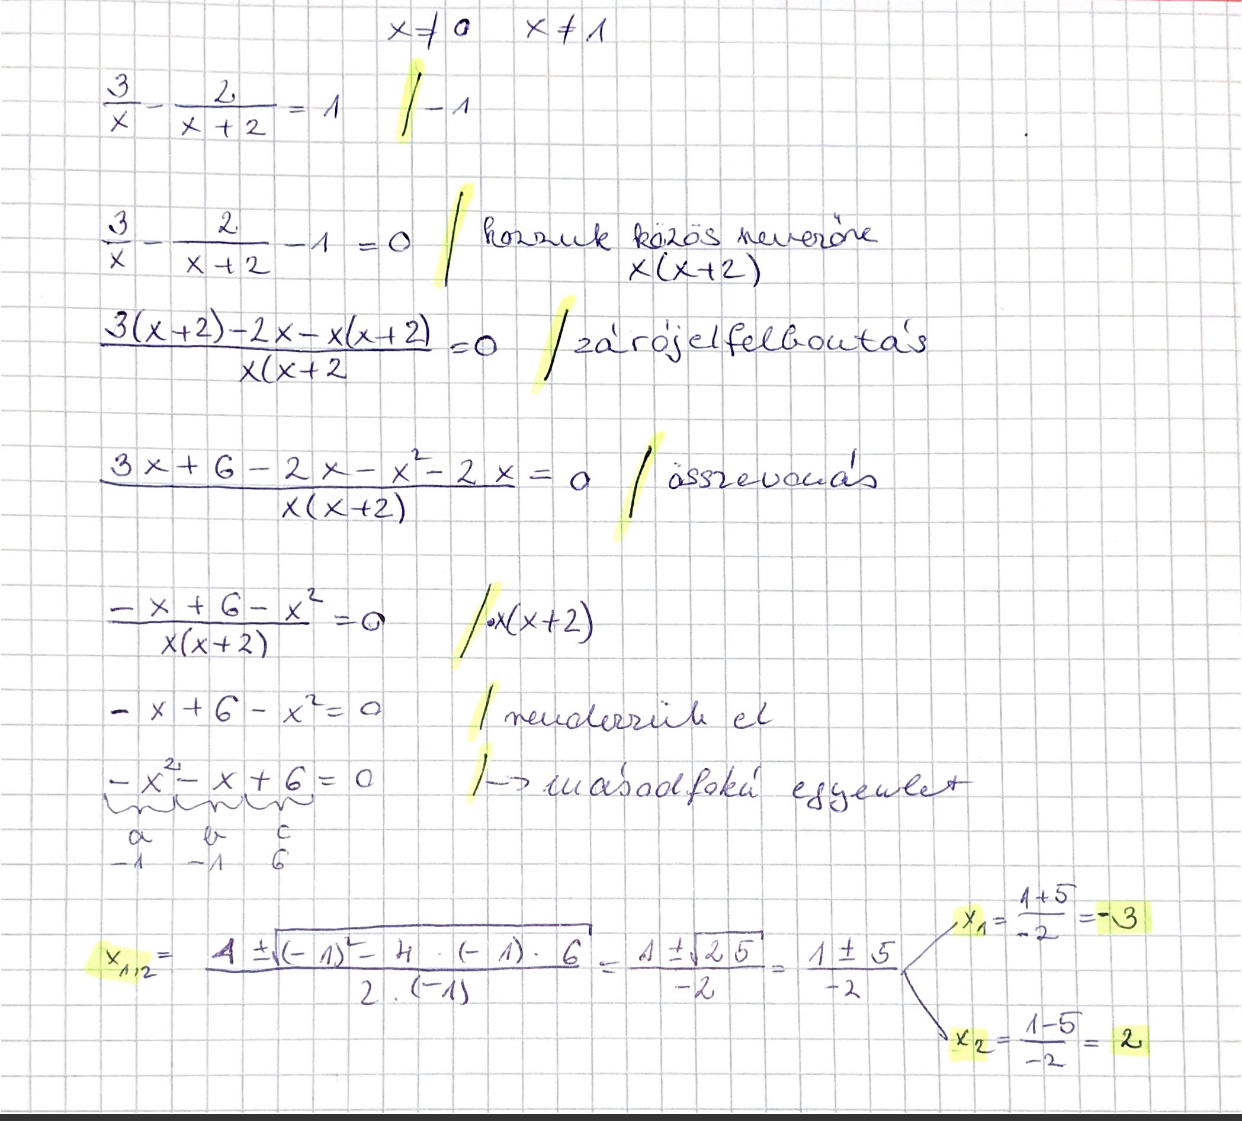 x ≠ 0 x ≠ 1
3/x - 2/(x + 2) = 1 / - 1
3/x - 2/(x + 2) - 1 = 0 / hozzuk közös nevezőre
x(x+2)
(3(x+2) - 2x - x(x+2))/(x(x+2) = 0 / zárójelfelbontás
(3x + 6 - 2x - x² - 2x)/(x(x+2)) = 0 / összevonás
(-x + 6 - x²)/(x(x+2)) = 0 / ·x(x+2)
-x + 6 - x² = 0 / rendezzük el
-x² - x + 6 = 0 / -> másodfokú egyenlet
a b c
-1 -1 6
x₁,₂ = (1 ± √((-1)² - 4 · (-1) · 6))/(2 · (-1)) = (1 ± √25)/(-2) = (1 ± 5)/(-2)
x₁ = (1+5)/(-2) = -3
x₂ = (1-5)/(-2) = 2